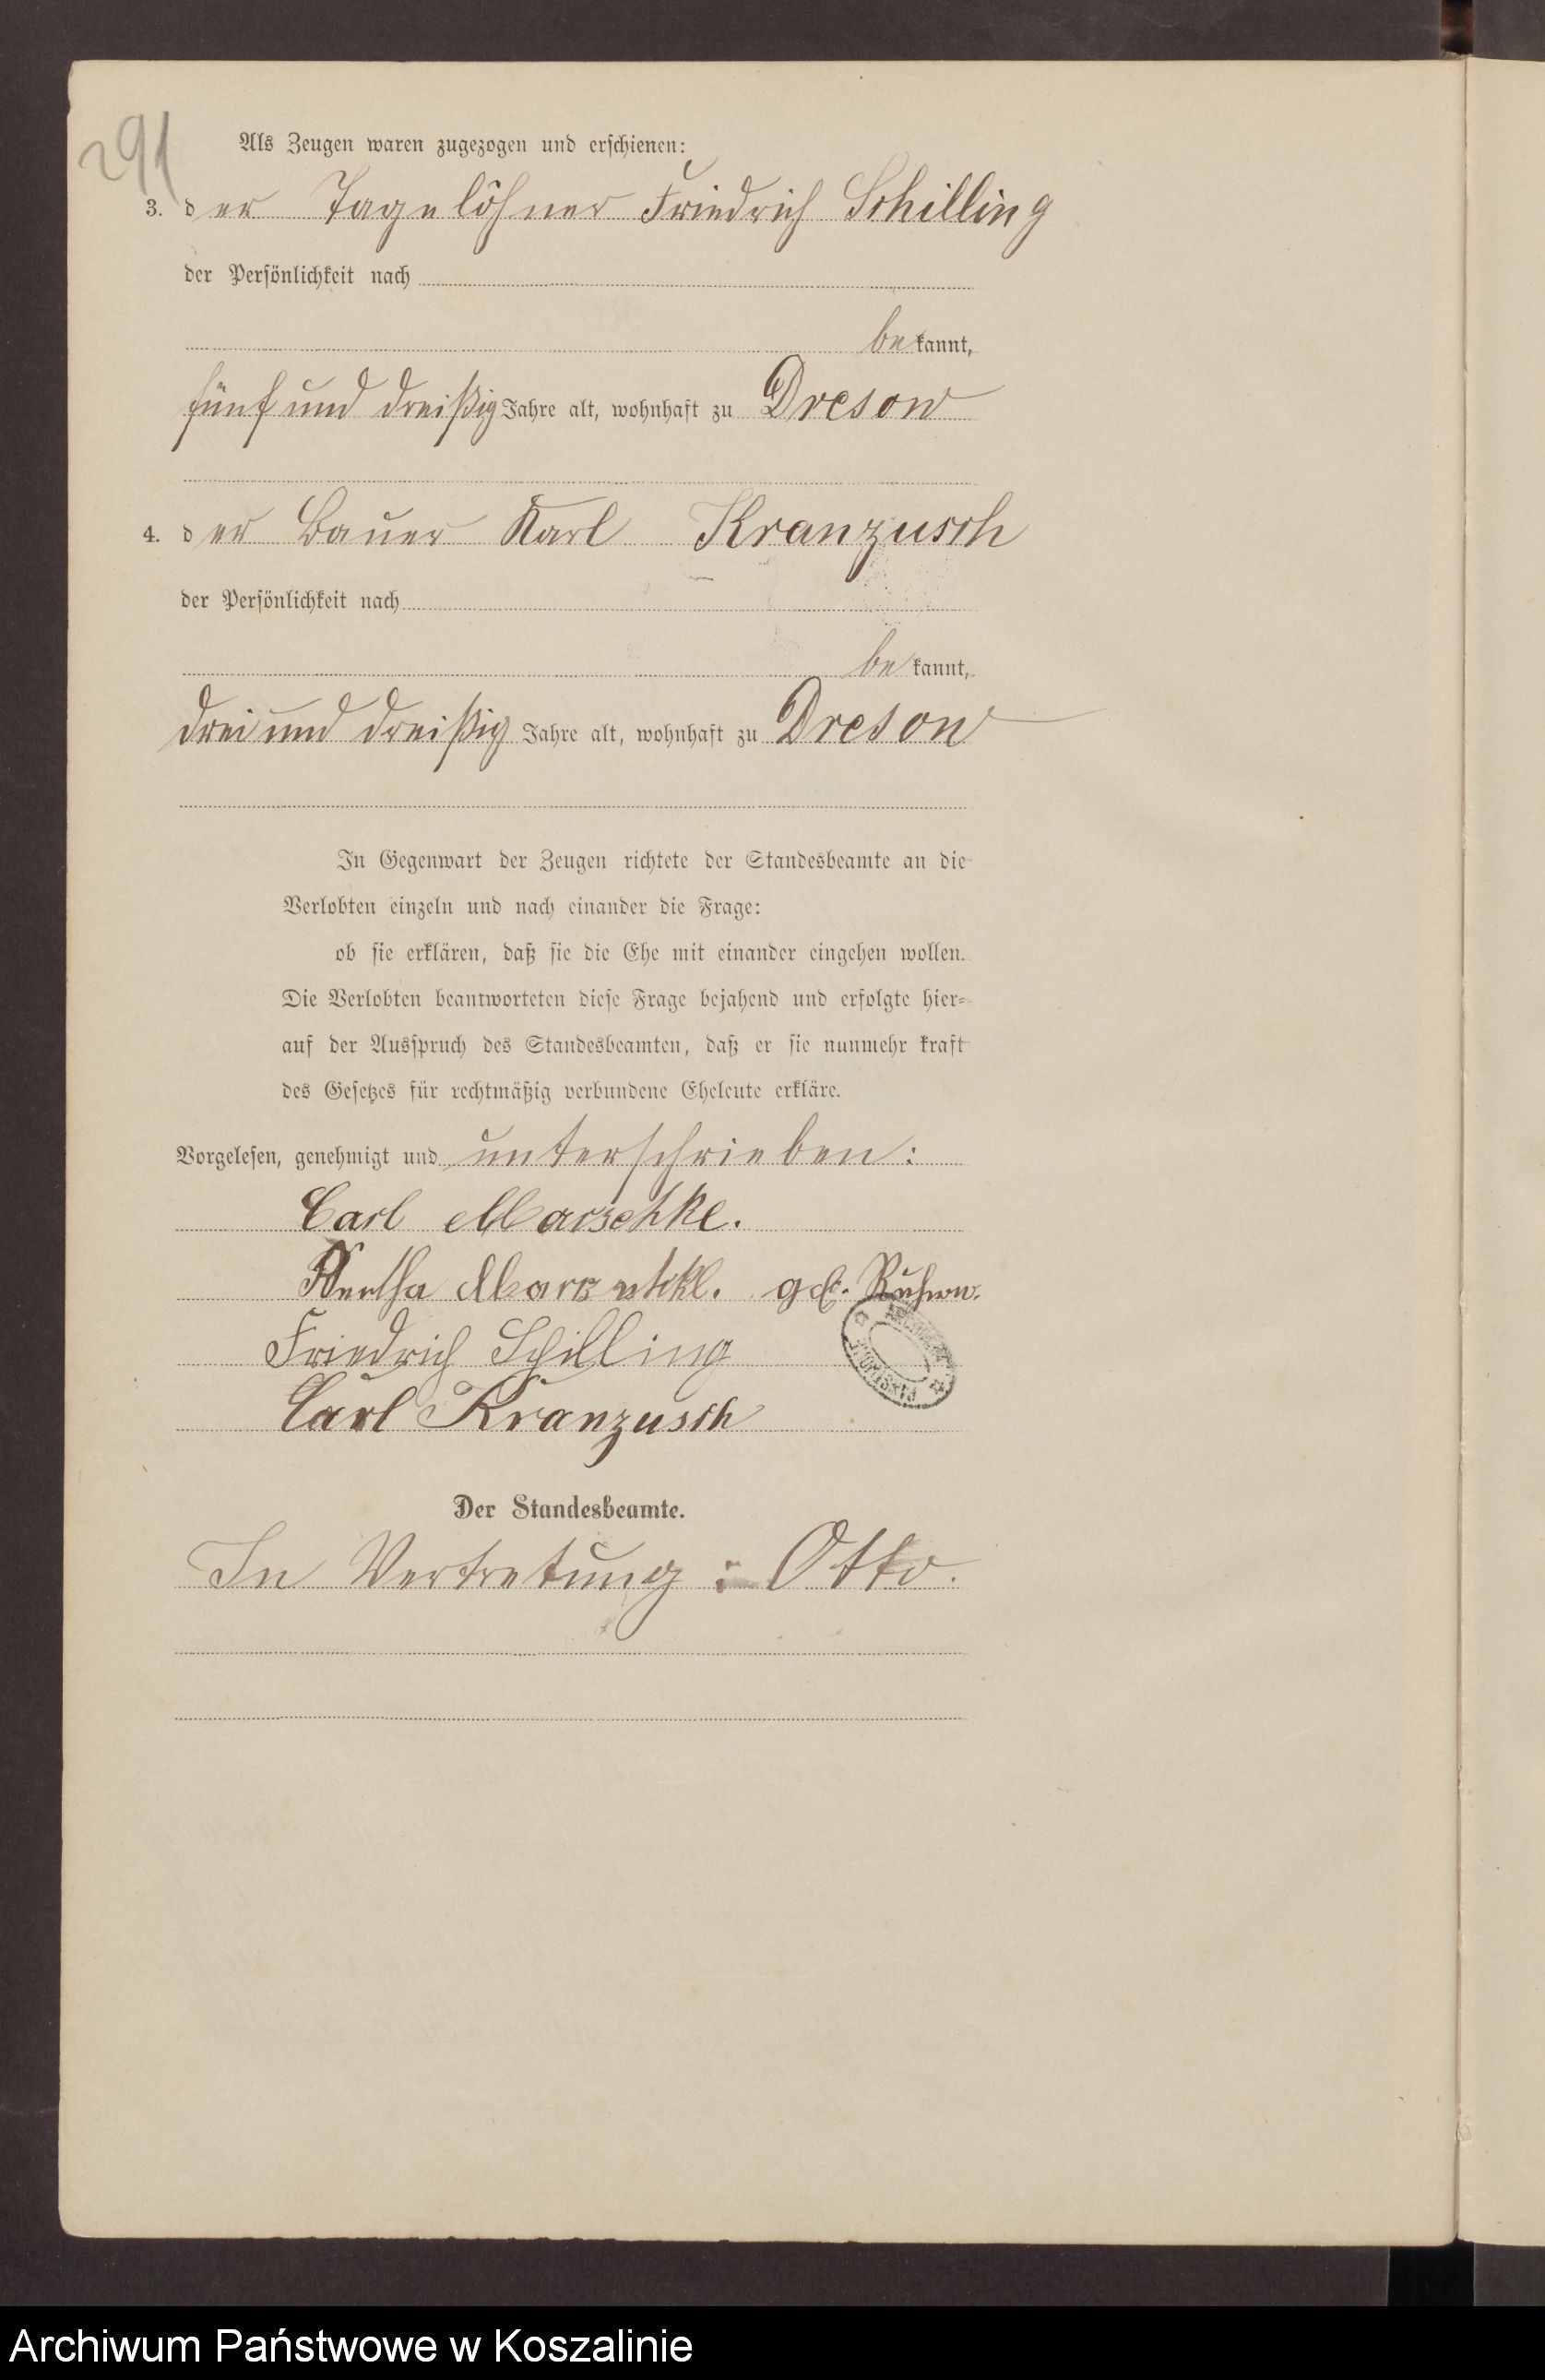 291
Als Zeugen waren zugezogen und erschienen:
3. der Tagelöhner Friedrich Schilling
der Persönlichkeit nach
bekannt,
fünf und dreißig Jahre alt, wohnhaft zu Dresow
4. der Bauer Karl Kranzusch
der Persönlichkeit nach
bekannt,
drei und dreißig Jahre alt, wohnhaft zu Dresow
In Gegenwart der Zeugen richtete der Standesbeamte an die
Verlobten einzeln und nach einander die Frage:
ob sie erklären, daß sie die Ehe mit einander eingehen wollen.
Die Verlobten beantworteten diese Frage bejahend und erfolgte hier=
auf der Ausspruch des Standesbeamten, daß er sie nunmehr kraft
des Gesetzes für rechtmäßig verbundene Eheleute erkläre.
Vorgelesen, genehmigt und unterschrieben:
Carl Marschke.
geb.
Friedrich Schilling
Carl Kranzusch
Der Standesbeamte.
In Vertretung: Otto.
Archiwum Państwowe w Koszalinie